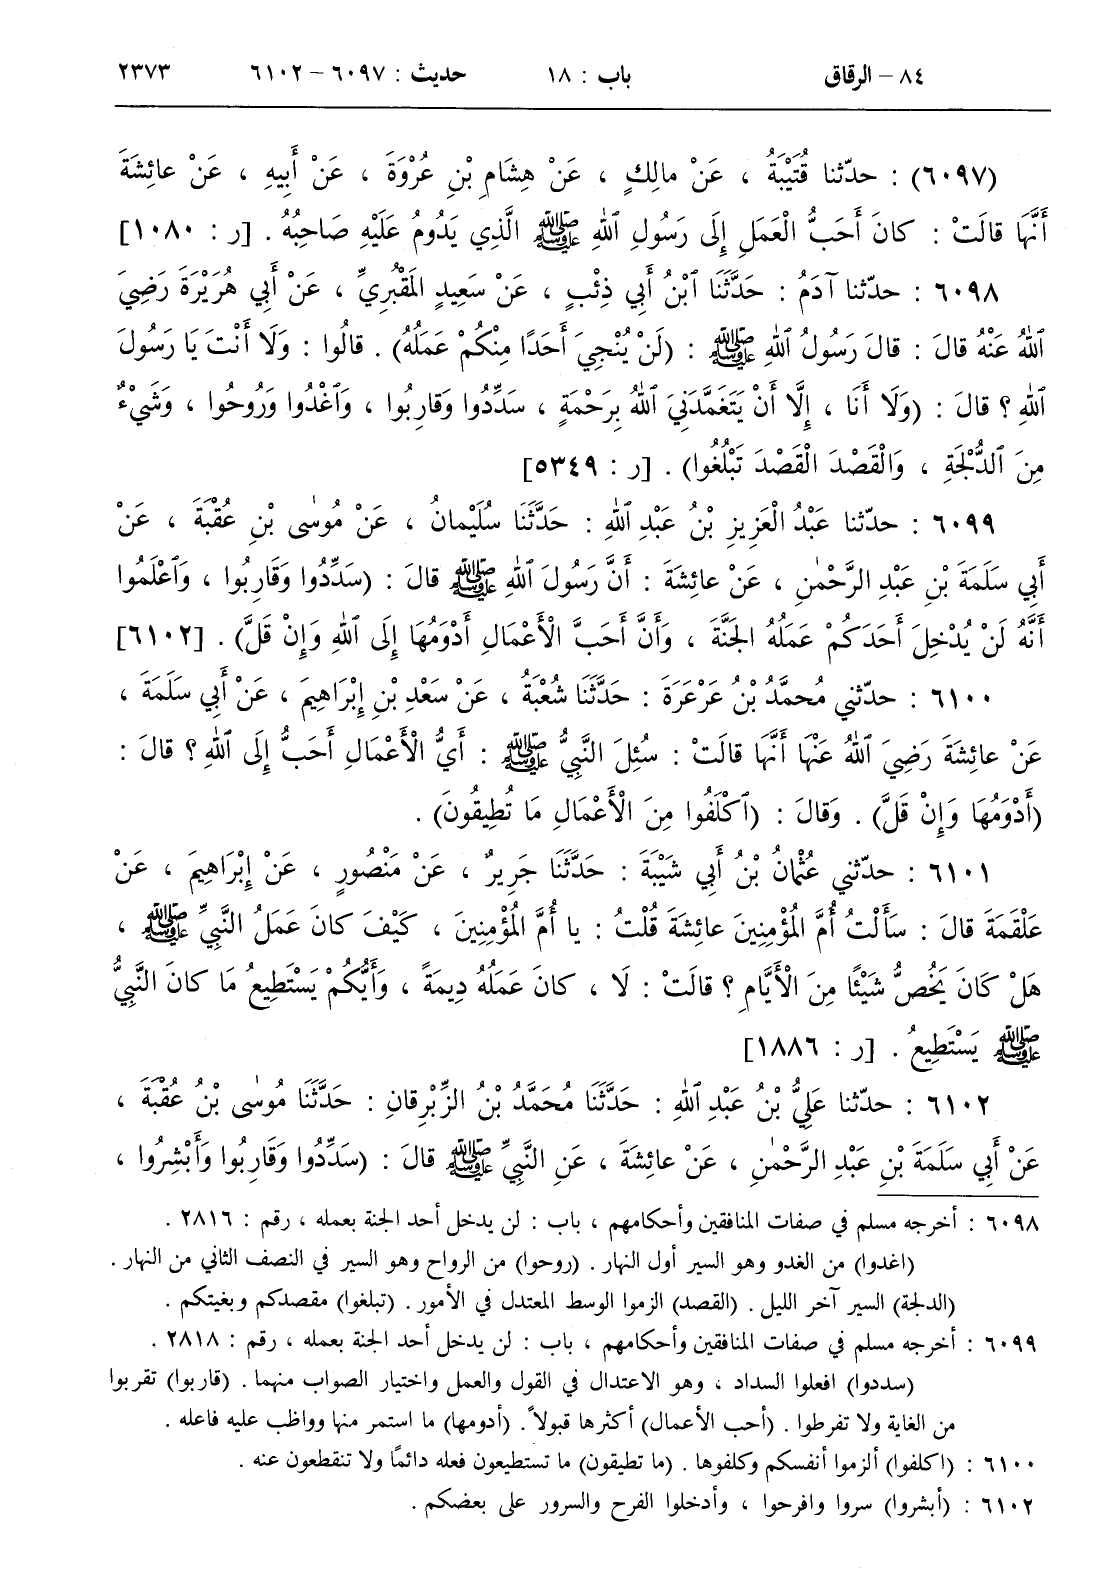 ٨٤ – الرقاق باب : ١٨ حديث : ٦٠٩٧ – ٦١٠٢ ٢٣٧٣
(٦٠٩٧) : حدّثنا قُتَيْبَةُ ، عَنْ مالِكٍ ، عَنْ هِشَامِ بْنِ عُرْوَةَ ، عَنْ أَبِيهِ ، عَنْ عائِشَةَ
أَنَّهَا قالَتْ : كانَ أَحَبُّ الْعَمَلِ إِلَى رَسُولِ ٱللهِ ﷺ الَّذِي يَدُومُ عَلَيْهِ صَاحِبُهُ . [ر : ١٠٨٠]
٦٠٩٨ : حدّثنا آدَمُ : حَدَّثَنَا ٱبْنُ أَبِي ذِئْبٍ ، عَنْ سَعِيدٍ المَقْبُرِيِّ ، عَنْ أَبِي هُرَيْرَةَ رَضِيَ
ٱللهُ عَنْهُ قالَ : قالَ رَسُولُ ٱللهِ ﷺ : (لَنْ يُنْجِيَ أَحَدًا مِنْكُمْ عَمَلُهُ) . قالُوا : وَلَا أَنْتَ يَا رَسُولَ
ٱللهِ ؟ قالَ : (وَلَا أَنَا ، إِلَّا أَنْ يَتَغَمَّدَنِيَ ٱللهُ بِرَحْمَةٍ ، سَدِّدُوا وَقارِبُوا ، وَٱغْدُوا وَرُوحُوا ، وَشَيْءٌ
مِنَ ٱلدُّلْجَةِ ، وَالْقَصْدَ الْقَصْدَ تَبْلُغُوا) . [ر : ٥٣٤٩]
٦٠٩٩ : حدّثنا عَبْدُ الْعَزِيزِ بْنُ عَبْدِ ٱللهِ : حَدَّثَنَا سُلَيْمانُ ، عَنْ مُوسٰى بْنِ عُقْبَةَ ، عَنْ
أَبِي سَلَمَةَ بْنِ عَبْدِ الرَّحْمٰنِ ، عَنْ عائِشَةَ : أَنَّ رَسُولَ ٱللهِ ﷺ قالَ : (سَدِّدُوا وَقَارِبُوا ، وَٱعْلَمُوا
أَنَّهُ لَنْ يُدْخِلَ أَحَدَكُمْ عَمَلُهُ الجَنَّةَ ، وَأَنَّ أَحَبَّ الْأَعْمَالِ أَدْوَمُهَا إِلَى ٱللهِ وَإِنْ قَلَّ) . [٦١٠٢]
٦١٠٠ : حدّثني مُحمَّدُ بْنُ عَرْعَرَةَ : حَدَّثَنَا شُعْبَةُ ، عَنْ سَعْدِ بْنِ إِبْرَاهِيمَ ، عَنْ أَبِي سَلَمَةَ ،
عَنْ عائِشَةَ رَضِيَ ٱللهُ عَنْهَا أَنَّهَا قالَتْ : سُئِلَ النَّبِيُّ ﷺ : أَيُّ الْأَعْمَالِ أَحَبُّ إِلَى ٱللهِ ؟ قالَ :
(أَدْوَمُهَا وَإِنْ قَلَّ) . وَقالَ : (ٱكْلَفُوا مِنَ الْأَعْمَالِ مَا تُطِيقُونَ) .
٦١٠١ : حدّثني عُثْمانُ بْنُ أَبِي شَيْبَةَ : حَدَّثَنَا جَرِيرٌ ، عَنْ مَنْصُورٍ ، عَنْ إِبْرَاهِيمَ ، عَنْ
عَلْقَمَةَ قالَ : سَأَلْتُ أُمَّ المُؤْمِنِينَ عائِشَةَ قُلْتُ : يا أُمَّ المُؤْمِنِينَ ، كَيْفَ كانَ عَمَلُ النَّبِيِّ ﷺ ،
هَلْ كَانَ يَخُصُّ شَيْئًا مِنَ الْأَيَّامِ ؟ قالَتْ : لَا ، كانَ عَمَلُهُ دِيمَةً ، وَأَيُّكُمْ يَسْتَطِيعُ مَا كانَ النَّبِيُّ
ﷺ يَسْتَطِيعُ . [ر : ١٨٨٦]
٦١٠٢ : حدّثنا عَلِيُّ بْنُ عَبْدِ ٱللهِ : حَدَّثَنَا مُحَمَّدُ بْنُ الزِّبْرِقانِ : حَدَّثَنَا مُوسٰى بْنُ عُقْبَةَ ،
عَنْ أَبِي سَلَمَةَ بْنِ عَبْدِ الرَّحْمٰنِ ، عَنْ عائِشَةَ ، عَنِ النَّبِيِّ ﷺ قالَ : (سَدِّدُوا وَقَارِبُوا وَأَبْشِرُوا ،
٦٠٩٨ : أخرجه مسلم في صفات المنافقين وأحكامهم ، باب : لن يدخل أحد الجنة بعمله ، رقم : ٢٨١٦ .
(اغدوا) من الغدو وهو السير أول النهار . (روحوا) من الرواح وهو السير في النصف الثاني من النهار .
(الدلجة) السير آخر الليل . (القصد) الزموا الوسط المعتدل في الأمور . (تبلغوا) مقصدكم وبغيتكم .
٦٠٩٩ : أخرجه مسلم في صفات المنافقين وأحكامهم ، باب : لن يدخل أحد الجنة بعمله ، رقم : ٢٨١٨ .
(سددوا) افعلوا السداد ، وهو الاعتدال في القول والعمل واختيار الصواب منهما . (قاربوا) تقربوا
من الغاية ولا تفرطوا . (أحب الأعمال) أكثرها قبولاً . (أدومها) ما استمر منها وواظب عليه فاعله .
٦١٠٠ : (اكلفوا) ألزموا أنفسكم وكلفوها . (ما تطيقون) ما تستطيعون فعله دائمًا ولا تنقطعون عنه .
٦١٠٢ : (أبشروا) سروا وافرحوا ، وأدخلوا الفرح والسرور على بعضكم .